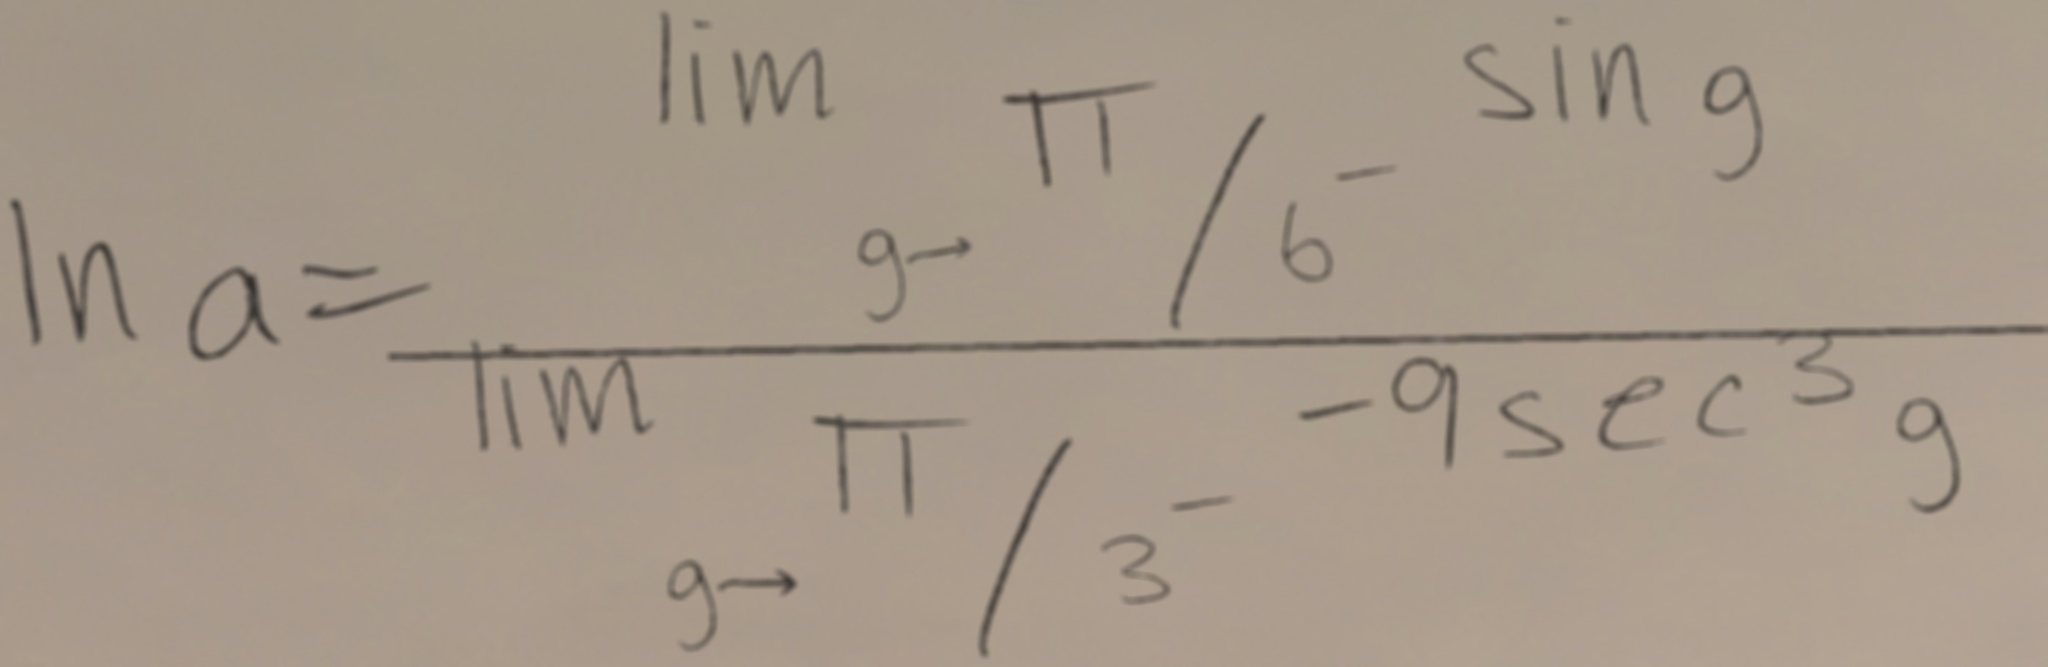 ln a = \frac{\lim_{g \to \pi/6^-} \sin g}{\lim_{g \to \pi/3^-} -9 \sec^3 g}